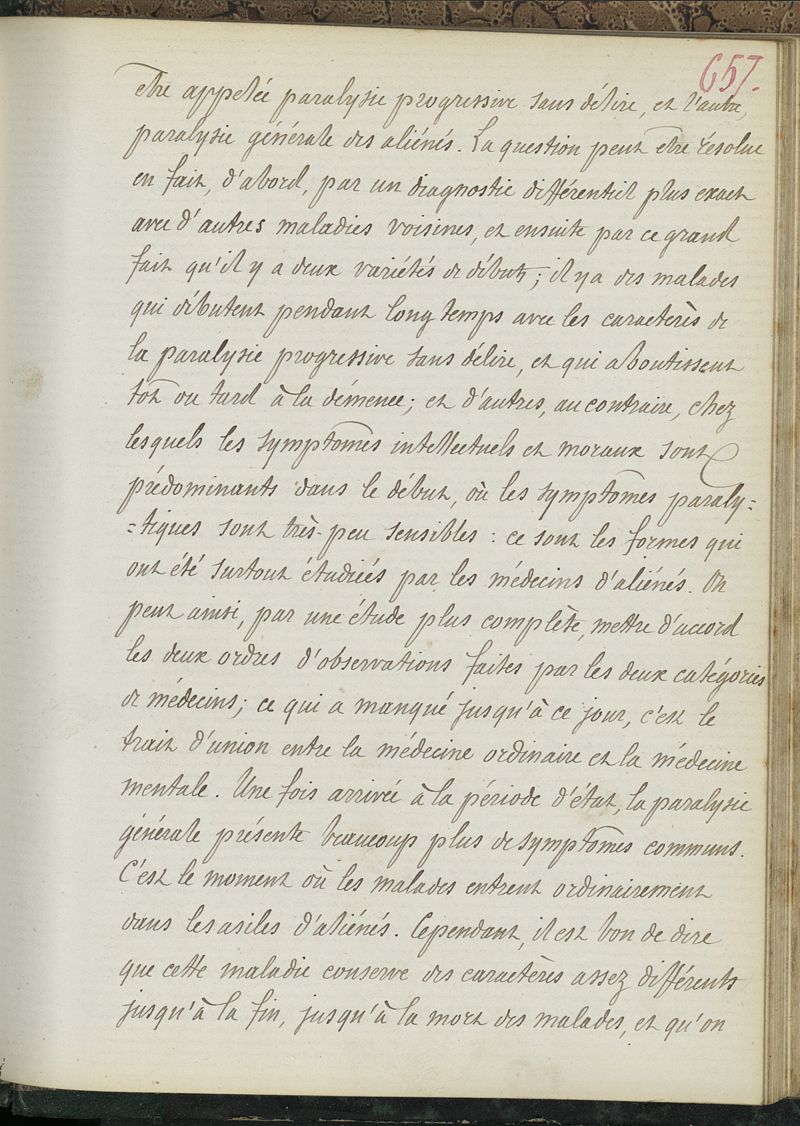 657.
être appelée paralysie progressive sans délire, et l'autre,
paralysie générale des aliénés. La question peut être résolue
en fait, d'abord, par un diagnostic différentiel plus exact
avec d'autres maladies voisines, et ensuite par ce grand
fait qu'il y a deux variétés de débuts ; il y a des malades
qui débutent pendant longtemps avec les caractères de
la paralysie progressive sans délire, et qui aboutissent
tôt ou tard à la démence ; et d'autres, au contraire, chez
lesquels les symptômes intellectuels et moraux sont
prédominants dans le début, où les symptômes paraly=
=tiques sont très-peu sensibles : ce sont les formes qui
ont été surtout étudiées par les médecins d'aliénés. On
peut ainsi, par une étude plus complète, mettre d'accord
les deux ordres d'observations faites par les deux catégories
de médecins ; ce qui a manqué jusqu'à ce jour, c'est le
trait d'union entre la médecine ordinaire et la médecine
mentale. Une fois arrivée à la période d'état, la paralysie
générale présente beaucoup plus de symptômes communs.
C'est le moment où les malades entrent ordinairement
dans les asiles d'aliénés. Cependant, il est bon de dire
que cette maladie conserve des caractères assez différents
jusqu'à la fin, jusqu'à la mort des malades, et qu'on